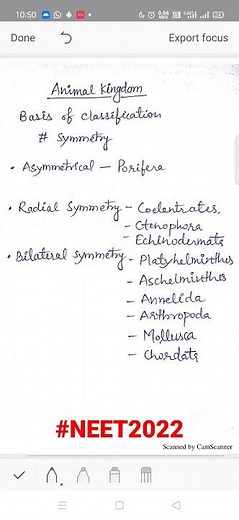 10:50
Done
Export focus
Animal Kingdom
Basis of classification
# Symmetry
• Asymmetrical — Porifera
• Radial Symmetry - Coelentrates,
- Ctenophora
- Echinodermate
• Bilateral Symmetry - Platyhelminthes
- Aschelminthes
- Annelida
- Arthropoda
- Mollusca
- Chordate
#NEET2022
Scanned by CamScanner